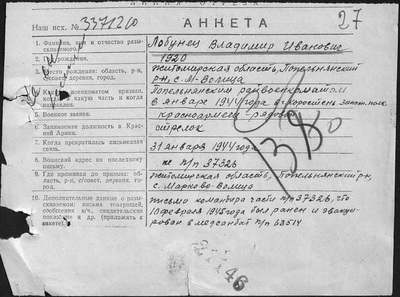 АНКЕТА
27
Наш исх. № 3371260
1. Фамилия, имя и отчество разыскиваемого.
Лобунец Владимир Иванович
1920
Место рождения: область, р-н, с/совет, деревня, город.
Житомирская область, Попельнянский
р-н, с. М-Волица
Каким военкоматом призван, когда, в какую часть и когда направлен.
Попельнянским райвоенкоматом
в январе 1944 года в запасн. полк.
5. Военное звание.
красноармеец-рядовой
6. Занимаемая должность в Красной Армии.
стрелок
7. Когда прекратилась письменная связь.
31 января 1944 года
8. Воинский адрес по последнему письму.
п/п 37326
9. Где проживал до призыва: область, р-н, с/совет, деревня, город.
житомирская область, Попельнянский р-н,
с. Марково-Волица
10. Дополнительные данные о разыскиваемом: письма товарищей, сообщения в/ч, свидетельские показания и др. (приложить к анкете)
письмо командира части п/п 37326, что
10 февраля 1945 года был ранен и эвакуи-
рован в медсанбат п/п 63514
46